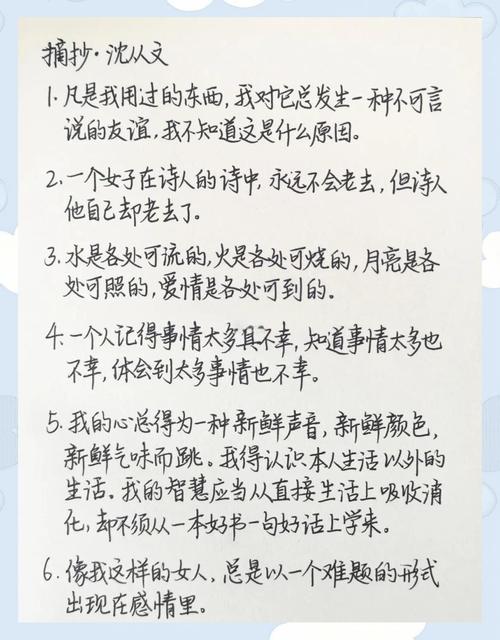 摘抄·沈从文
1.凡是我用过的东西,我对它总发生一种不可言
说的友谊,我不知道这是什么原因。
2.一个女子在诗人的诗中,永远不会老去,但诗人
他自己却老去了。
3.水是各处可流的,火是各处可烧的,月亮是各
处可照的,爱情是各处可到的。
4.一个人记得事情太多真不幸,知道事情太多也
不幸,体会到太多事情也不幸。
5.我的心总得为一种新鲜声音,新鲜颜色,
新鲜气味而跳。我得认识本人生活以外的
生活。我的智慧应当从直接生活上吸收消
化,却不须从一本好书一句好话上学来。
6.像我这样的女人,总是以一个难题的形式
出现在感情里。